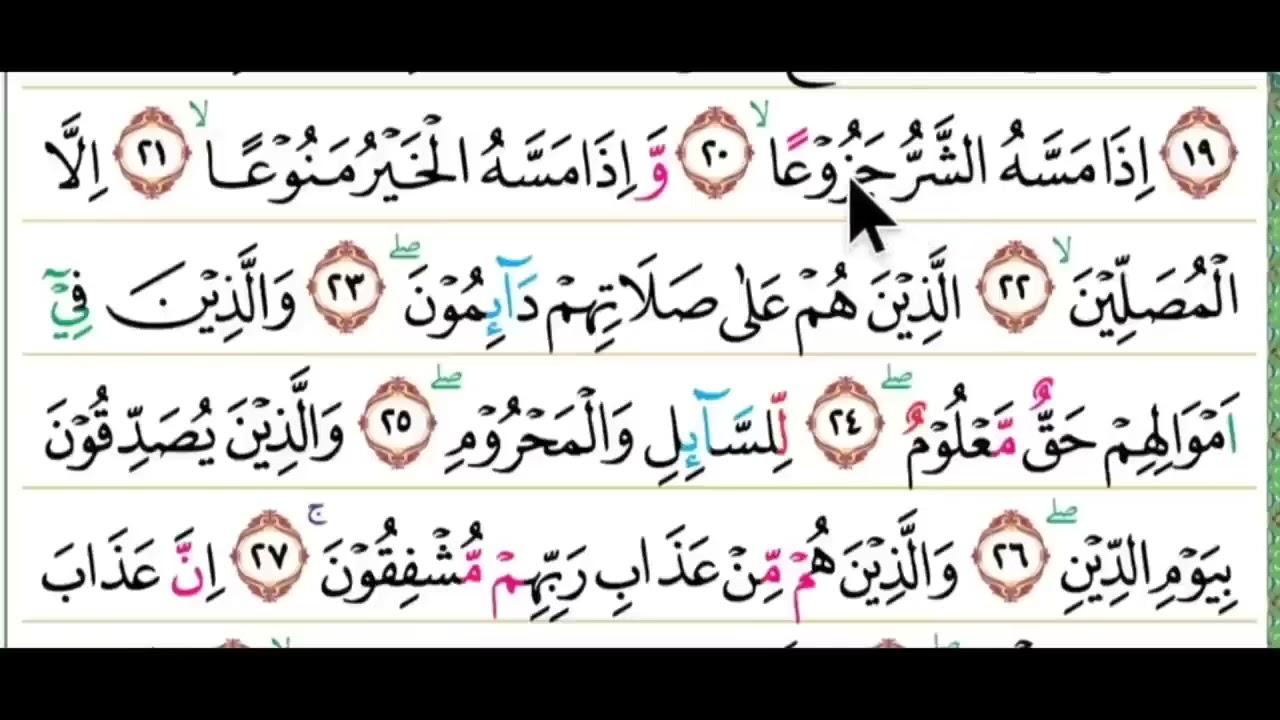 ١٩ اِذَا مَسَّهُ الشَّرُّ جَزُوْعًا ۙ ٢٠ وَّاِذَا مَسَّهُ الْخَيْرُ مَنُوْعًا ۙ ٢١ اِلَّا
الْمُصَلِّيْنَ ۙ ٢٢ الَّذِيْنَ هُمْ عَلٰى صَلَاتِهِمْ دَآىِٕمُوْنَ ۖ ٢٣ وَالَّذِيْنَ فِيْٓ
اَمْوَالِهِمْ حَقٌّ مَّعْلُوْمٌ ۖ ٢٤ لِّلسَّآىِٕلِ وَالْمَحْرُوْمِ ۖ ٢٥ وَالَّذِيْنَ يُصَدِّقُوْنَ
بِيَوْمِ الدِّيْنِ ۖ ٢٦ وَالَّذِيْنَ هُمْ مِّنْ عَذَابِ رَبِّهِمْ مُّشْفِقُوْنَ ۚ ٢٧ اِنَّ عَذَابَ